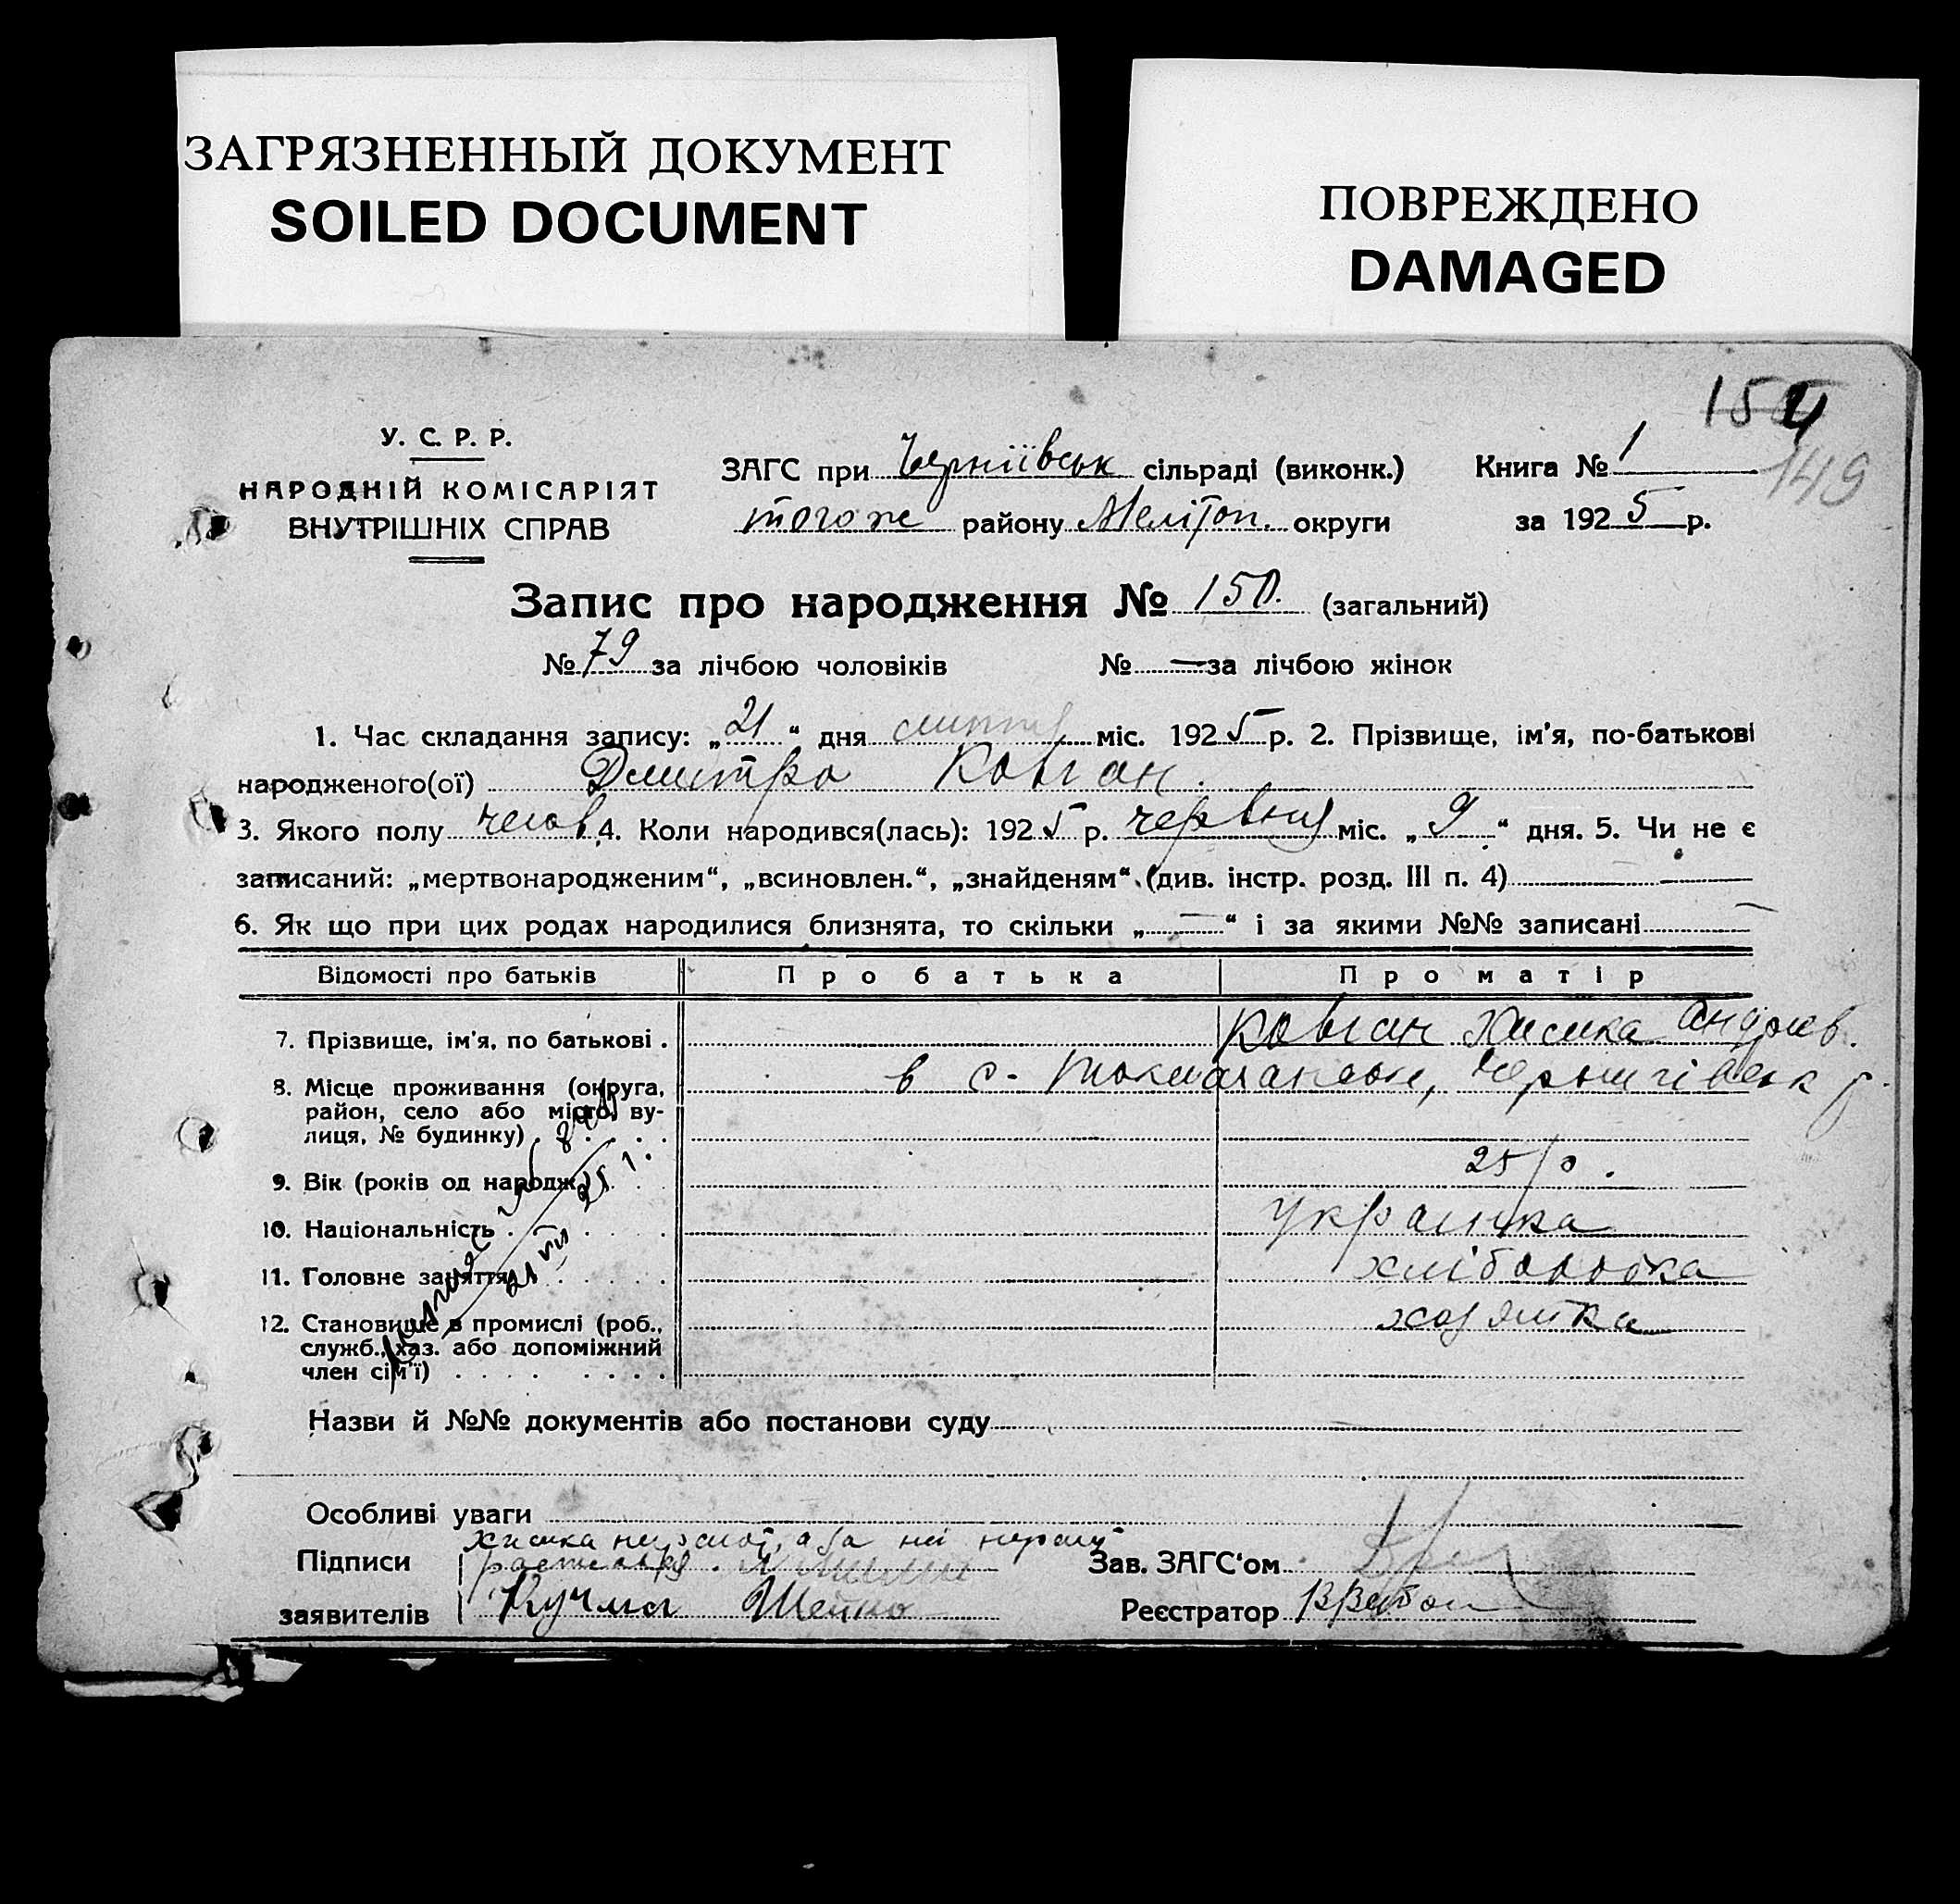 ЗАГРЯЗНЕННЫЙ ДОКУМЕНТ
SOILED DOCUMENT
ПОВРЕЖДЕНО
DAMAGED
149
У. С. Р. Р.
НАРОДНІЙ КОМІСАРІЯТ
ВНУТРІШНІХ СПРАВ
ЗАГС при сільраді (виконк.)
того же району Мелітоп. округи
Книга № 1
за 1925 р.
Запис про народження № 150. (загальний)
№ 79 за лічбою чоловіків № — за лічбою жінок
1. Час складання запису: „21“ дня міс. 1925 р. 2. Прізвище, ім'я, по-батькові
народженого(ої) Дмитро Ковган.
3. Якого полу 4. Коли народився(лась): 1925 р. червня міс. „9“ дня. 5. Чи не є
записаний: „мертвонародженим“, „всиновлен.“, „знайденям“ (див. інстр. розд. III п. 4) —
6. Як що при цих родах народилися близнята, то скільки „—“ і за якими №№ записані —
Відомості про батьків Про батька Про матір
7. Прізвище, ім'я, по батькові . Ковган Андріев.
8. Місце проживання (округа, в с.
район, село або місто, ву-
лиця, № будинку)
9. Вік (років од народж.) 25 р.
10. Національність українка
11. Головне заняття хліборобка
12. Становище в промислі (роб., хозяйка
служб., хаз. або допоміжний
член сім'ї)
Назви й №№ документів або постанови суду
Особливі уваги
Підписи
заявителів Кучма
Зав. ЗАГС'ом
Реєстратор